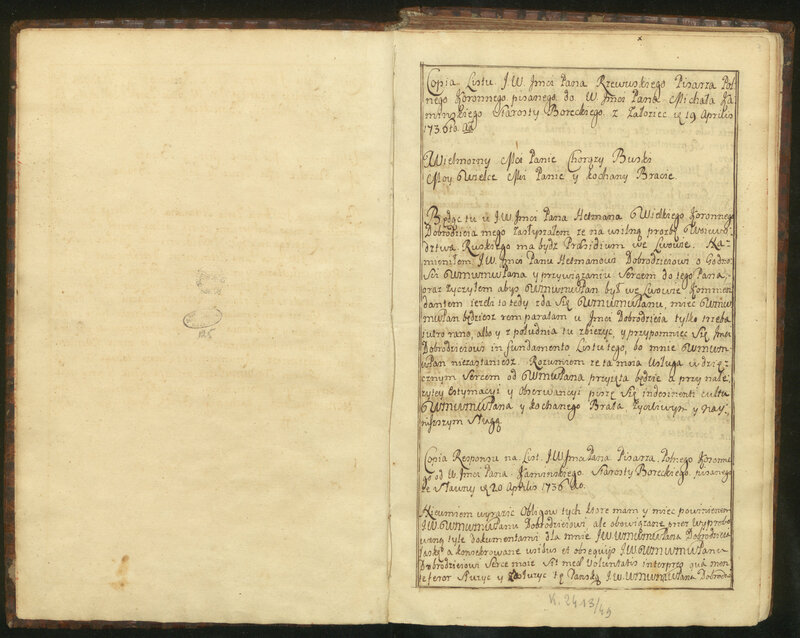 Copia Listu J.W. Jmci Pana Rzewuskiego Pisarza Pol
nego Koronnego pisanego do W Jmci Pana Michała Ka
minskiego Starosty Boreckiego z Załoziec d 19 Aprilis
1736to
Wielmozny Mci Panie Chorąży Buski
Moy Wielce Mci Panie y kochany Bracie.
Będąc tu u JW Jmci Pana Hetmana Wielkiego Koronnego
Dobrodzieia mego zasłyszałem ze na usilną prozbę Woiewo
dztwa Ruskiego ma bydz Præsidium we Lwowie. Na
mieniłem J.W. Jmci Panu Hetmanowi Dobrodzieiowi o Godno
sci WMWMPana y przywiązaniu Sercem do tego Pana,
oraz zyczyłem abys WMWMPan był we Lwowie Kommen
dantem iezeli to tedy zda się WMWMPanu, miec WMW
MPan będziesz rem paratam u Jmci Dobrodzieia tylko trzeba
iutro rano, albo y z południa tu zbiezyc, y przypomniec się Jmci
Dobrodzieiowi in fundamento Listu tego, bo mnie WMWM
Pan niezastaniesz. Rozumiem ze ta moia usługa wdzię
cznym Sercem od WMWPana przyięta będzie a przy nale
zytey estymacyi y obserwancyi piszę się indesinenti cultu
WMWMWPana y kochanego Brata zyczliwym y nay
nizszym Sługą
Copia Responsu na List J.W Jmci Pana Pisarza Polnego Koronne
go od W. Jmci Pana Kaminskiego Starosty Boreckiego pisanego
ze Sławny d 20 Aprilis 1736 do.
Nieumiem wyrazic Obligow tych ktore mam y miec powinienem
JW.WMWMPanu Dobrodzieiowi, ale obowiązane przez wyprobo
waną tylą dokumentami dla mnie J.W. WMWMPana Dobrodzieia
Łaskę a konsekrowane usibus et obsequijs J.W WMWMPana
Dobrodzieiowi Serce moie sit meæ Voluntatis interpres quâ men
te feror Słuzyc y zasłuzyc tę Panską J.W. WMWMPana Dobrodzie
K. 2413/49